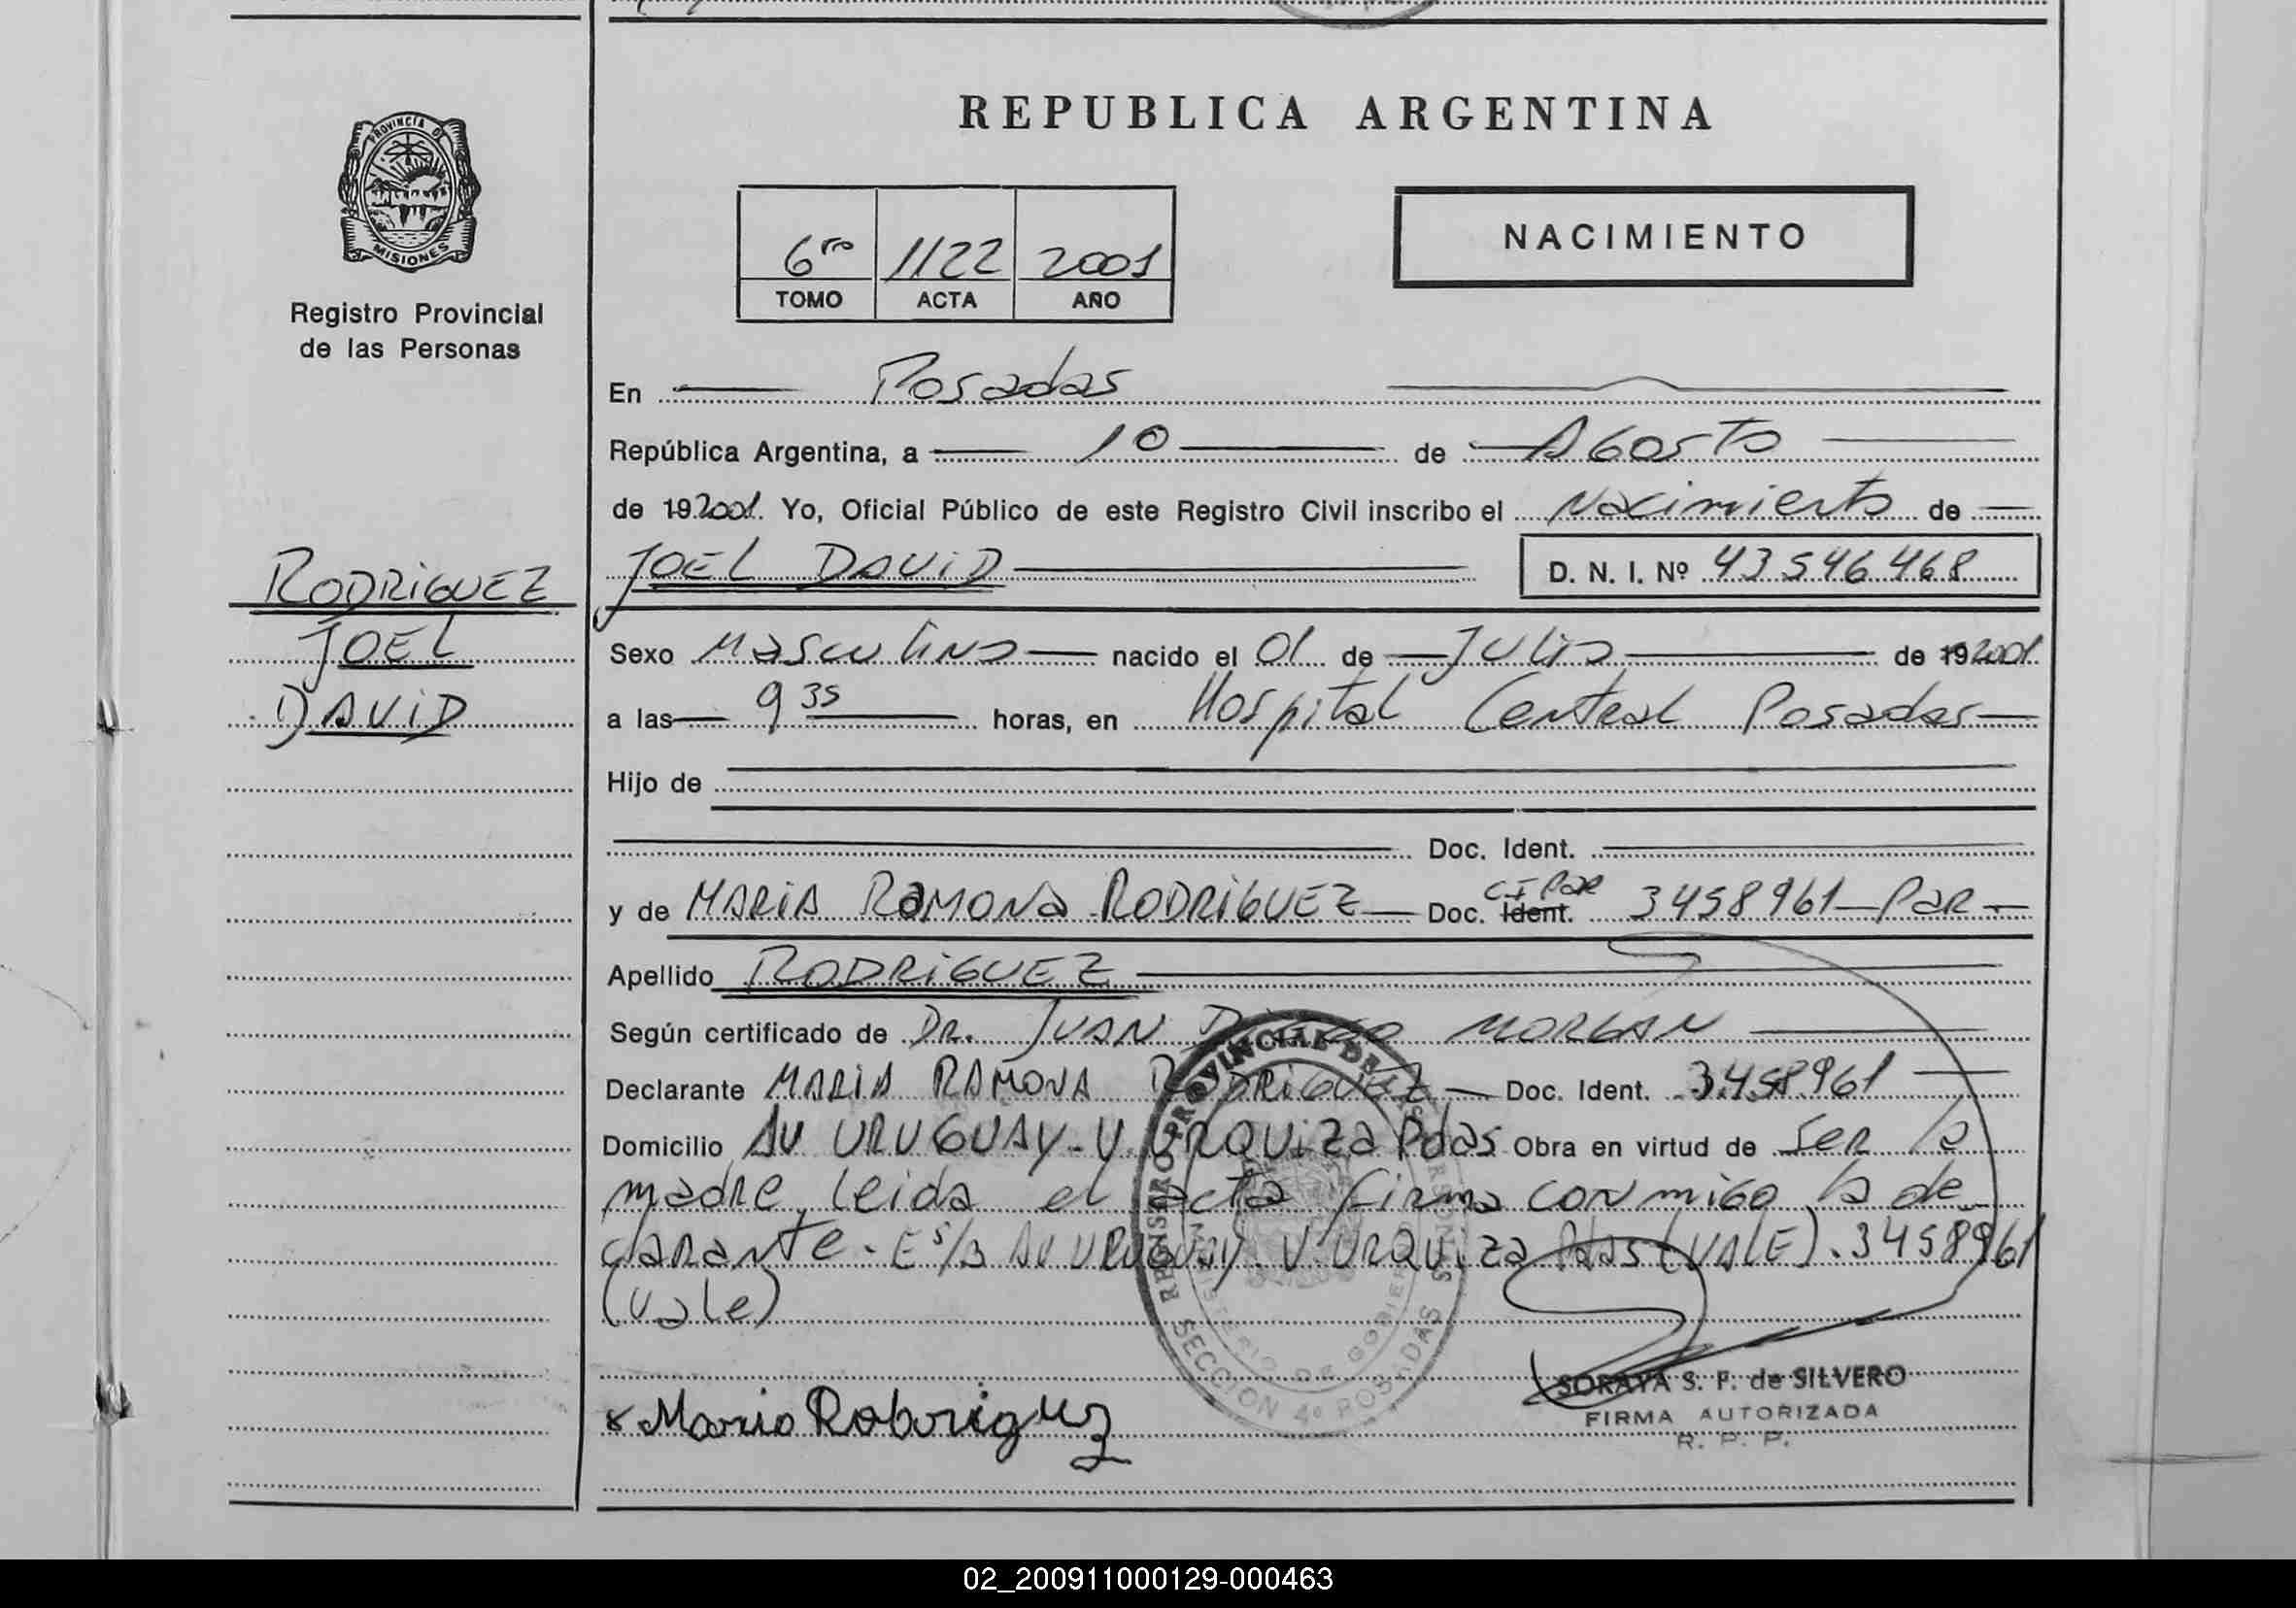 REPUBLICA ARGENTINA
PROVINCIA DE
MISIONES
Registro Provincial
de las Personas
6ro 1122 2001
TOMO ACTA AÑO
NACIMIENTO
En Posadas
República Argentina, a 10 de Agosto
de 19 2001. Yo, Oficial Público de este Registro Civil inscribo el Nacimiento de
RODRIGUEZ
JOEL
DAVID
JOEL DAVID D. N. I. Nº 43546468
Sexo Masculino nacido el 01 de Julio de 19 2001
a las 9 35 horas, en Hospital Central Posadas
Hijo de
Doc. Ident.
y de MARIA RAMONA RODRIGUEZ Doc. Ident. CI PAR 3458961 - PAR -
Apellido RODRIGUEZ
Según certificado de DR. JUAN MORGAN
Declarante MARIA RAMONA RODRIGUEZ Doc. Ident. 3458961
Domicilio AV URUGUAY - Y URQUIZA Pdas Obra en virtud de Ser la
madre, leida el acta firma conmigo la de
clarante - Es/B AV URUGUAY. Y URQUIZA Pdas (VALE). 3458961
(vale)
REGISTRO PROVINCIAL DE LAS PERSONAS
MINISTERIO DE GOBIERNO
SECCION 4º POSADAS
Maria Robriguez
SORAYA S. F. de SILVERO
FIRMA AUTORIZADA
R. P. P.
02_200911000129-000463